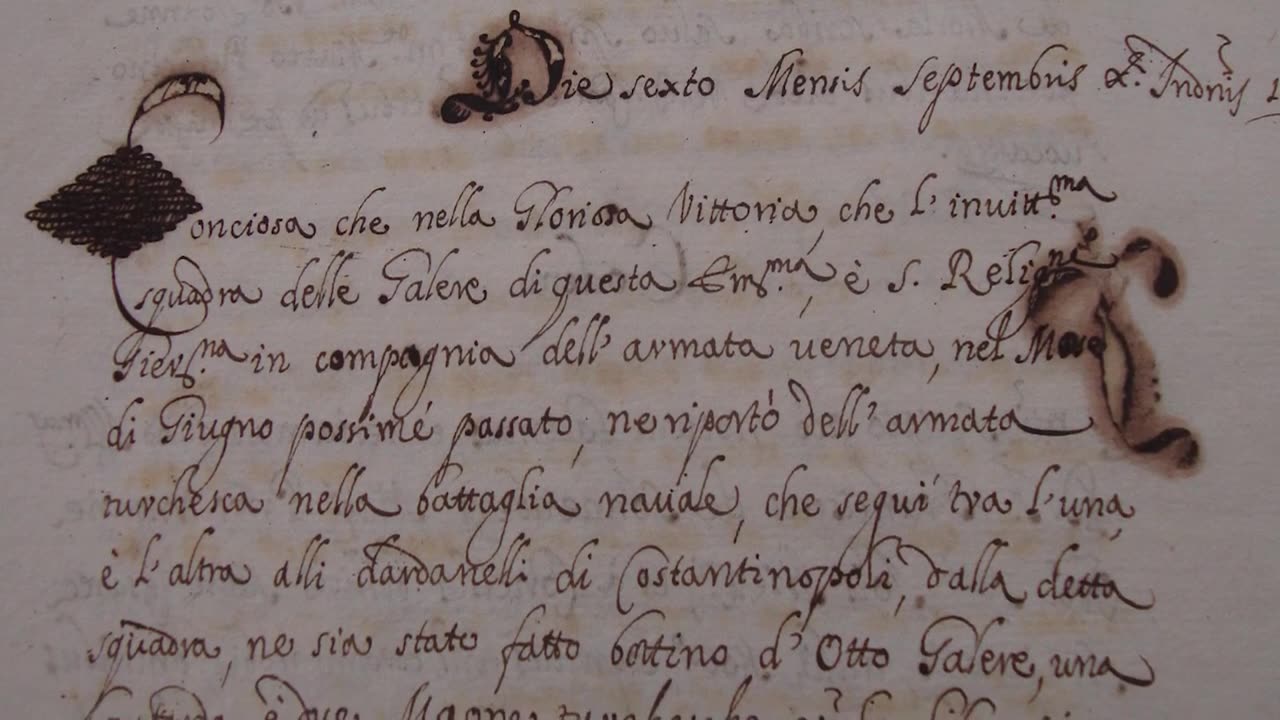 Die sexto Mensis Septembris
Conciosa che nella Gloriosa Vittoria, che l'inuitt.ma
squadra delle Galere di questa Em.ma, è S. Relig.ne
Gier.na in compagnia dell'armata veneta, nel Mese
di Giugno possimé passato, ne riportò dell'armata
turchesca nella battaglia nauale, che seguì tra l'una,
è l'altra alli dardanelli di Costantinopoli, dalla detta
squadra, ne sia stato fatto bottino d'Otto Galere, una
è due Maone turchesche